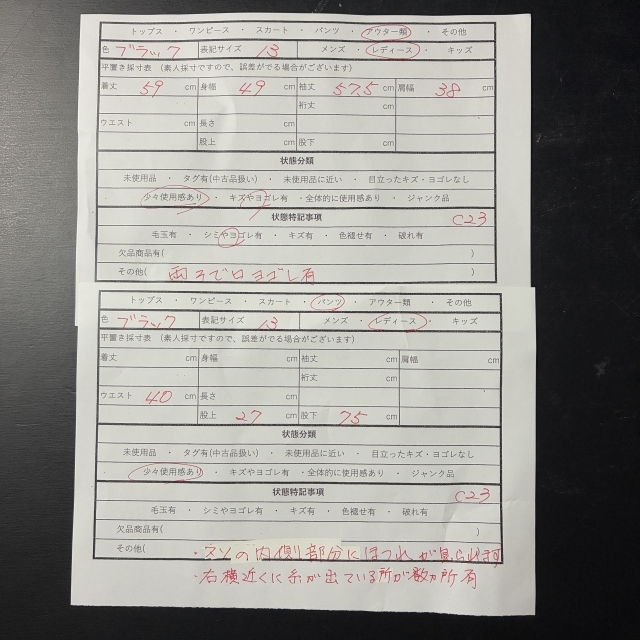 トップス ・ ワンピース ・ スカート ・ パンツ ・ アウター類 ・ その他
色 ブラック 表記サイズ 13 メンズ ・ レディース ・ キッズ
平置き採寸表 (素人採寸ですので、誤差がでる場合がございます)
着丈 59 cm 身幅 49 cm 袖丈 57.5 cm 肩幅 38 cm
裄丈
ウエスト cm 長さ cm cm
股上 cm 股下 cm
状態分類
未使用品 ・ タグ有(中古品扱い) ・ 未使用品に近い ・ 目立ったキズ・ヨゴレなし
少々使用感あり ・ キズやヨゴレ有 ・全体的に使用感あり ・ ジャンク品
状態特記事項 C23
毛玉有 ・ シミやヨゴレ有 ・ キズ有 ・ 色褪せ有 ・ 破れ有
欠品商品有( )
その他( 両そで口ヨゴレ有
トップス ・ ワンピース ・ スカート ・ パンツ ・ アウター類 ・ その他
色 ブラック 表記サイズ 13 メンズ ・ レディース ・ キッズ
平置き採寸表 (素人採寸ですので、誤差がでる場合がございます)
着丈 cm 身幅 cm 袖丈 cm 肩幅 cm
裄丈
ウエスト 40 cm 長さ cm cm
股上 27 cm 股下 75 cm
状態分類
未使用品 ・ タグ有(中古品扱い) ・ 未使用品に近い ・ 目立ったキズ・ヨゴレなし
少々使用感あり ・ キズやヨゴレ有 ・全体的に使用感あり ・ ジャンク品
状態特記事項 C23
毛玉有 ・ シミやヨゴレ有 ・ キズ有 ・ 色褪せ有 ・ 破れ有
欠品商品有( )
その他( ・スソの内側部分にほつれが見られます
・右横近くに糸が出ている所が数ヵ所有